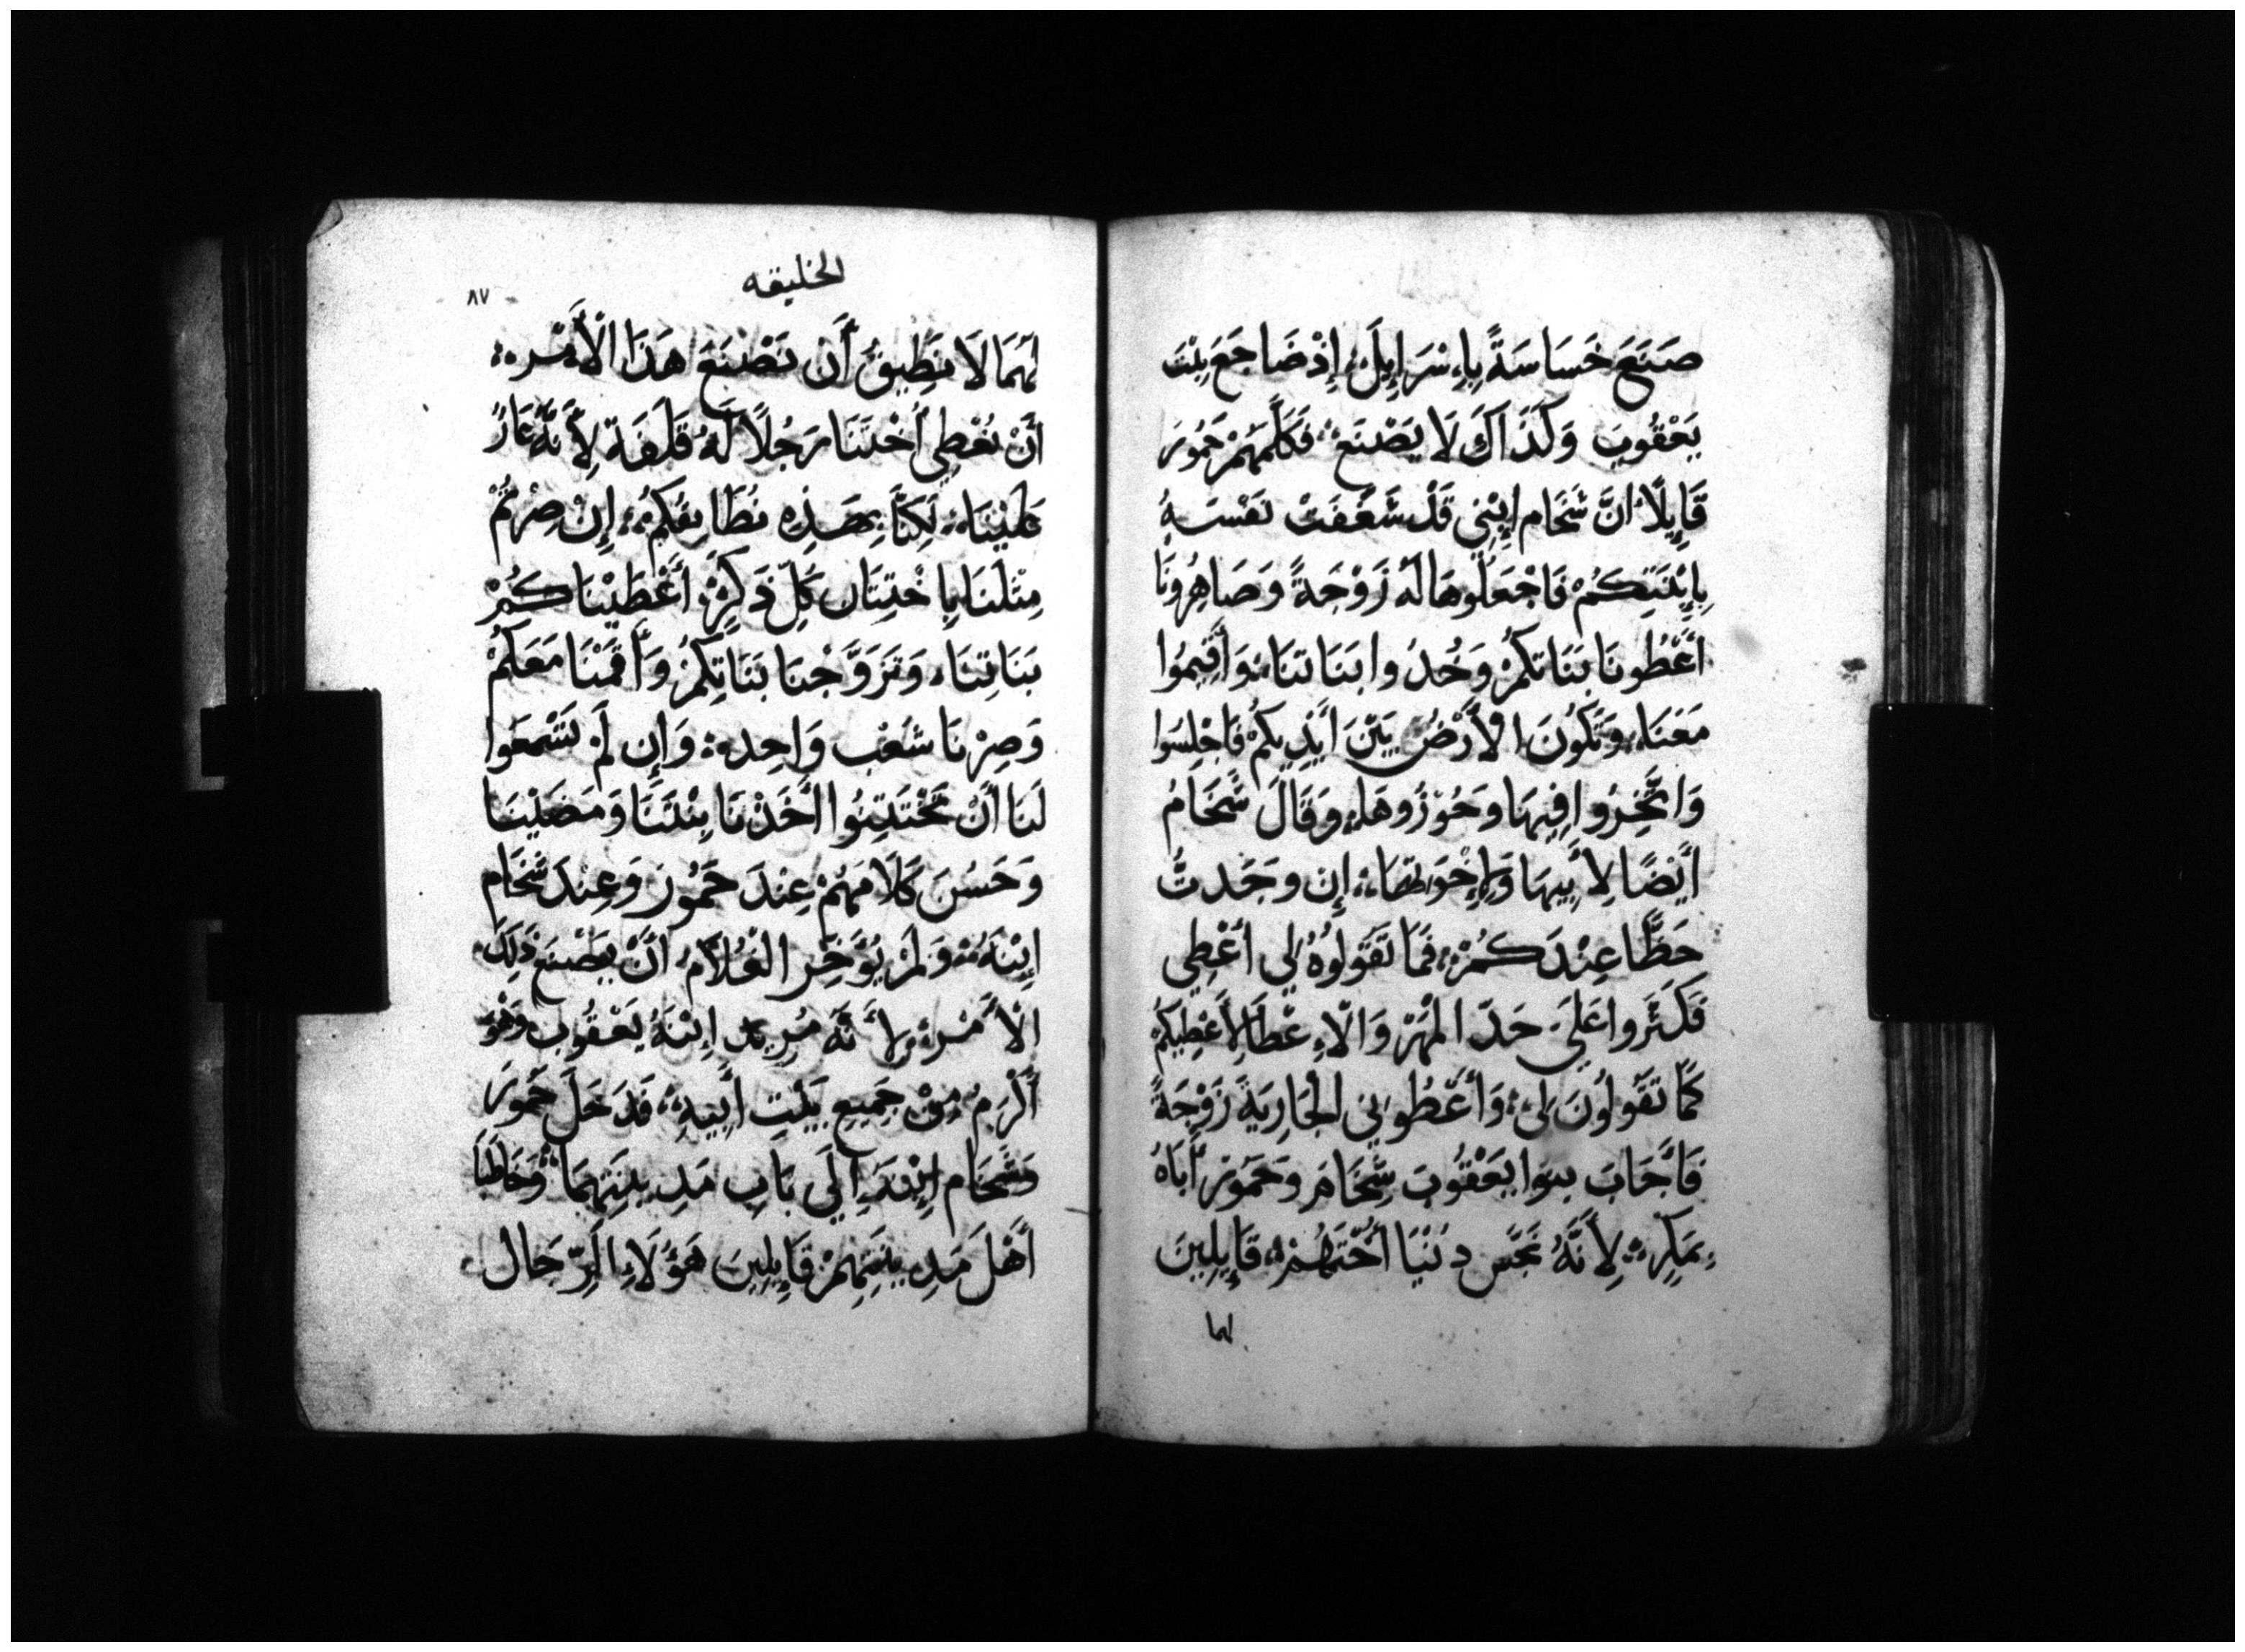 صَنَعَ خَسَاسَةً بِإِسْرَايِلَ؛ إِذْ ضَاجَعَ بِنْتَ
يَعْقُوبَ وَكَذَاكَ لَا يَصْنَعْ؛ فَكَلَّمَهُمْ حَمُورَ
قَايِلًا انَّ شَخَام اِبْنِى قَدْ شَغُفَتْ نَفْسَهُ
بِإِبْنَتِكُمْ فَاجْعَلُوهَا لَهُ زَوْجَةً وَصَاهِرُونَا
أَعْطُونَا بَنَاتِكُمْ وَخُدُوا بَنَاتنَا؛ وَأَقِيمُوا
مَعَنَا؛ وَتَكُونَ الأَرْضُ بَيْنَ أَيْدِيكُمْ فَاجْلِسُوا
وَاتَّجِرُوا فِيهَا وَحُوْزُوهَا؛ وَقَالَ شَخَامُ
أَيْضًا لِأَبِيهَا وَلِإِخْوَتهَا؛ إِن وَجَدتُ
حَظًّا عِنْدَكُمْ؛ فَمَا تَقُولُوهُ لِي أُعْطِي
فَكَثِّرُوا عَلَيَ حَدّ المَهْرْ وَالْإِعْطَا لِأُعْطِيكُمْ
كَمَا تَقُولُونَ لِى؛ وَأَعْطُونِى الجَارِيَةَ زَوْجَةً
فَأَجَابَ بنوا يَعْقُوبَ شَخَامَ وَحَمُورَ أَبَاهُ
بِمَكِرْ؛ لِأَنَّهُ نَجَّسِ دِنْيَا أُخْتَهُمْ؛ قَايِلِينَ
لهما
الخليقه
٨٧
لَهُمَا لَا نَطِيقُ أَن نَصْنَعَ هَذَا الْأَمْر؛
أَنْ نُعْطِي أُخْتَنَا رَجُلًا لَهُ قَلَفَة لِأَنَّهُ عَارٌ
عَلَيْنَا؛ لَكِنَّا بِهَذِهِ نُطَابِقُكُمْ؛ إِنْ صِرْتُمْ
مِثْلَنَا بِاخْتِتَان كُلّ ذَكَرٍ؛ أَعْطَيْنَاكُمْ
بَنَاتِنَا، وَتَزَوَّجْنَا بَنَاتِكُمْ وَأَقَمْنَا مَعَكُمْ
وَصِرْنَا شَعْب وَاحِد؛ وَإِن لَمْ تَسْمَعَوا
لَنَا أَنْ تَخْتَتِنُوا أَخَذْنَا بِنْتَنَا وَمَضَيْنَا
وَحَسُنَ كَلَامَهُمْ عِنْدَ حَمُورَ وَعِنْدَ شَخَام
اِبْنَهُ؛ وَلَمْ يُؤَخِّر الغُلَامُ أَنْ يَصْنَعَ ذَلِكَ
الأَمْرَ؛ لِأَنَّهُ مُرِيد اِبْنَةُ يَعْقُوب وَهْوَ
أَكْرَمُ مِنْ جَمِيعِ بَيْتِ أَبِيهِ؛ فَدَخَلَ حَمُورَ
وَشَخَام اِبْنَهُ إِلَى بَابِ مَدِينَتِهِمَا وَخَاطَبَا
أَهْلَ مَدِينَتِهِمْ قَايِلِينَ هَؤُلَاءِ الرِّجَال